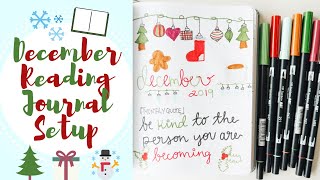 December
Reading
Journal
Setup
december
2019
[MONTHLY QUOTE]
be kind to the
person you are
becoming